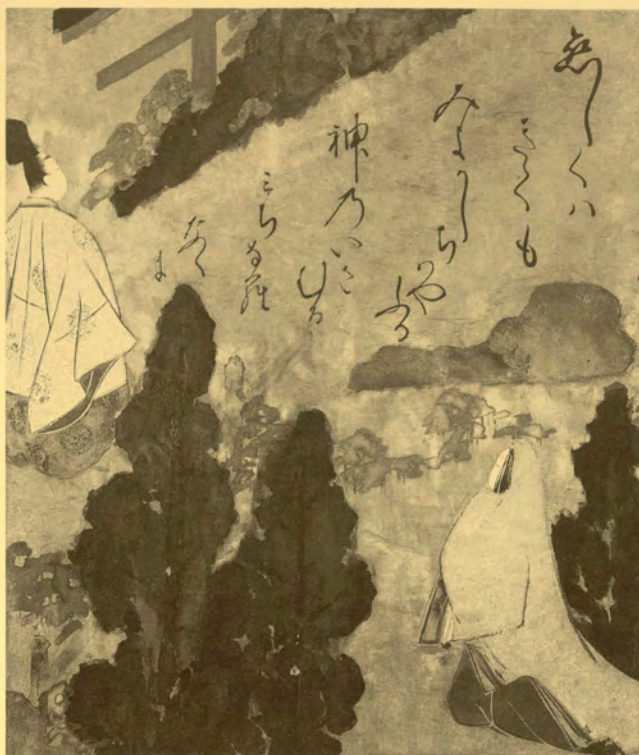 恋しくハ
きても
みよかしち
はやふる
神乃いさ
むる
ミちなら
なく
に